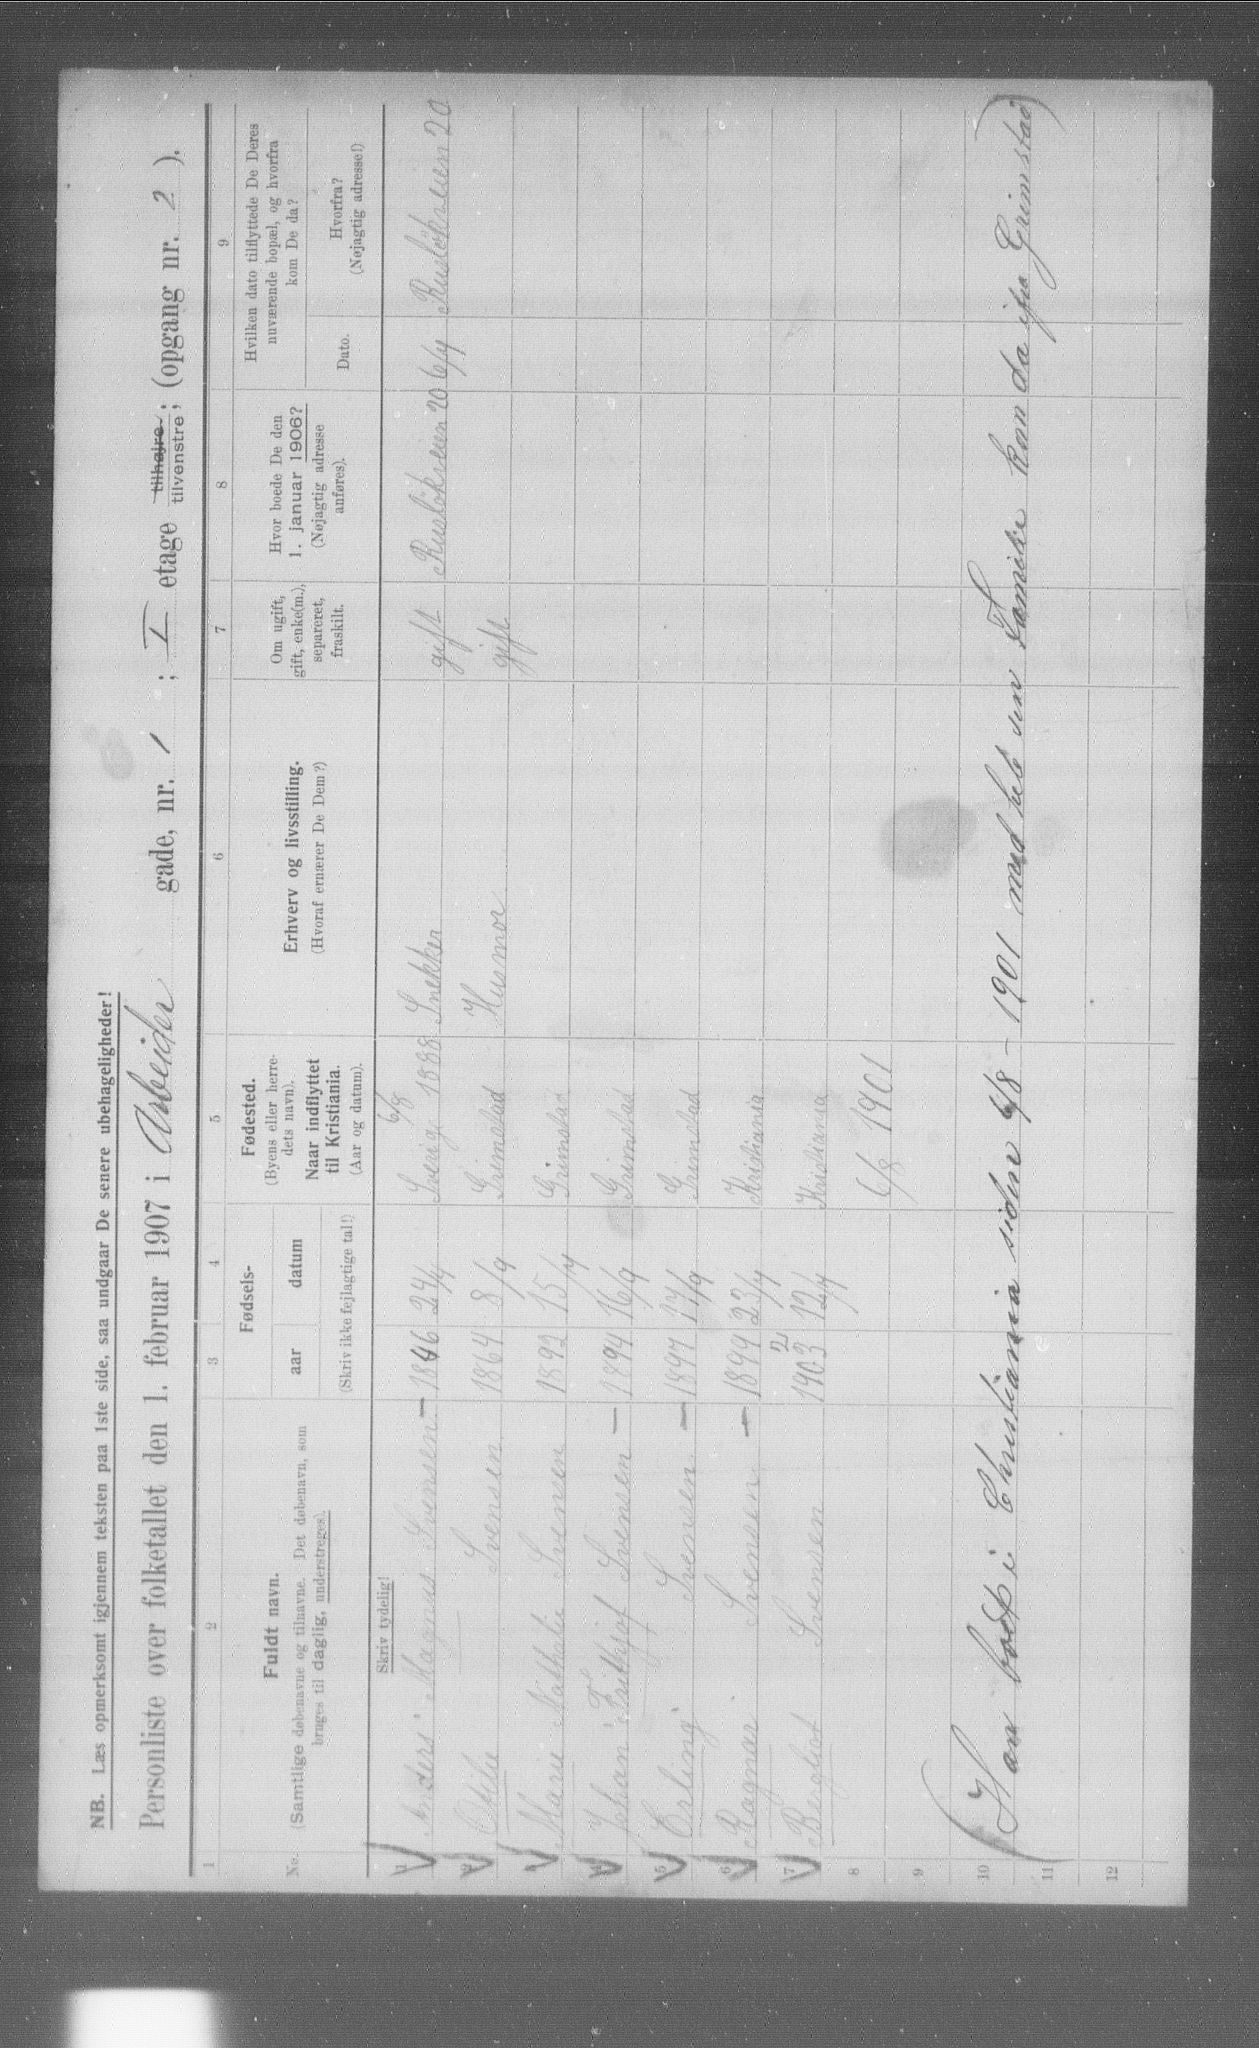 NB. Læs opmerksomt igjennem teksten paa 1ste side, saa undgaar De senere ubehageligheder!
Personliste over folketallet den 1. februar 1907 i Arbeider gade, nr. 1 ; I etage tilhøjre, tilvenstre; (opgang nr. 2 ).
1 2 3 4 5 6 7 8 9
No.
Fuldt navn.
(Samtlige døbenavne og tilnavne. Det døbenavn, som
bruges til daglig, understreges).
Fødsels-
aar datum
(Skriv ikke fejlagtige tal!)
Fødested.
(Byens eller herre-
dets navn).
Naar indflyttet
til Kristiania.
(Aar og datum).
Erhverv og livsstilling.
(Hvoraf ernærer De Dem?)
Om ugift,
gift, enke(m.),
separeret,
fraskilt.
Hvor boede De den
1. januar 1906?
(Nøjagtig adresse
anføres).
Hvilken dato tilflyttede De Deres
nuværende bopæl, og hvorfra
kom De da?
Dato.
Hvorfra?
(Nøjagtig adresse!)
Skriv tydelig!
1 Anders Magnus Svensen 1846 24/4 Sverig 6/8 1888 Snekker gift Rusløkveien 20 6/4 Rusløkveien 20
2 Otilie Svensen 1864 8/9 Grimstad Husmor gift
3 Marie Mathilde Svensen 1892 15/4 Grimstad
4 Johan Frithjof Svensen 1894 16/9 Grimstad
5 Erling Svensen 1897 17/9 Grimstad
6 Ragnar Svensen 1899 23/4 Kristiania
7 Bergliot Svensen 1903 12/4 Kristiania
8 6/8 1901
9
10 (Han bodt i Christiania siden 6/8 - 1901 med hele sin Familie kom da fra Grimstad)
11
12